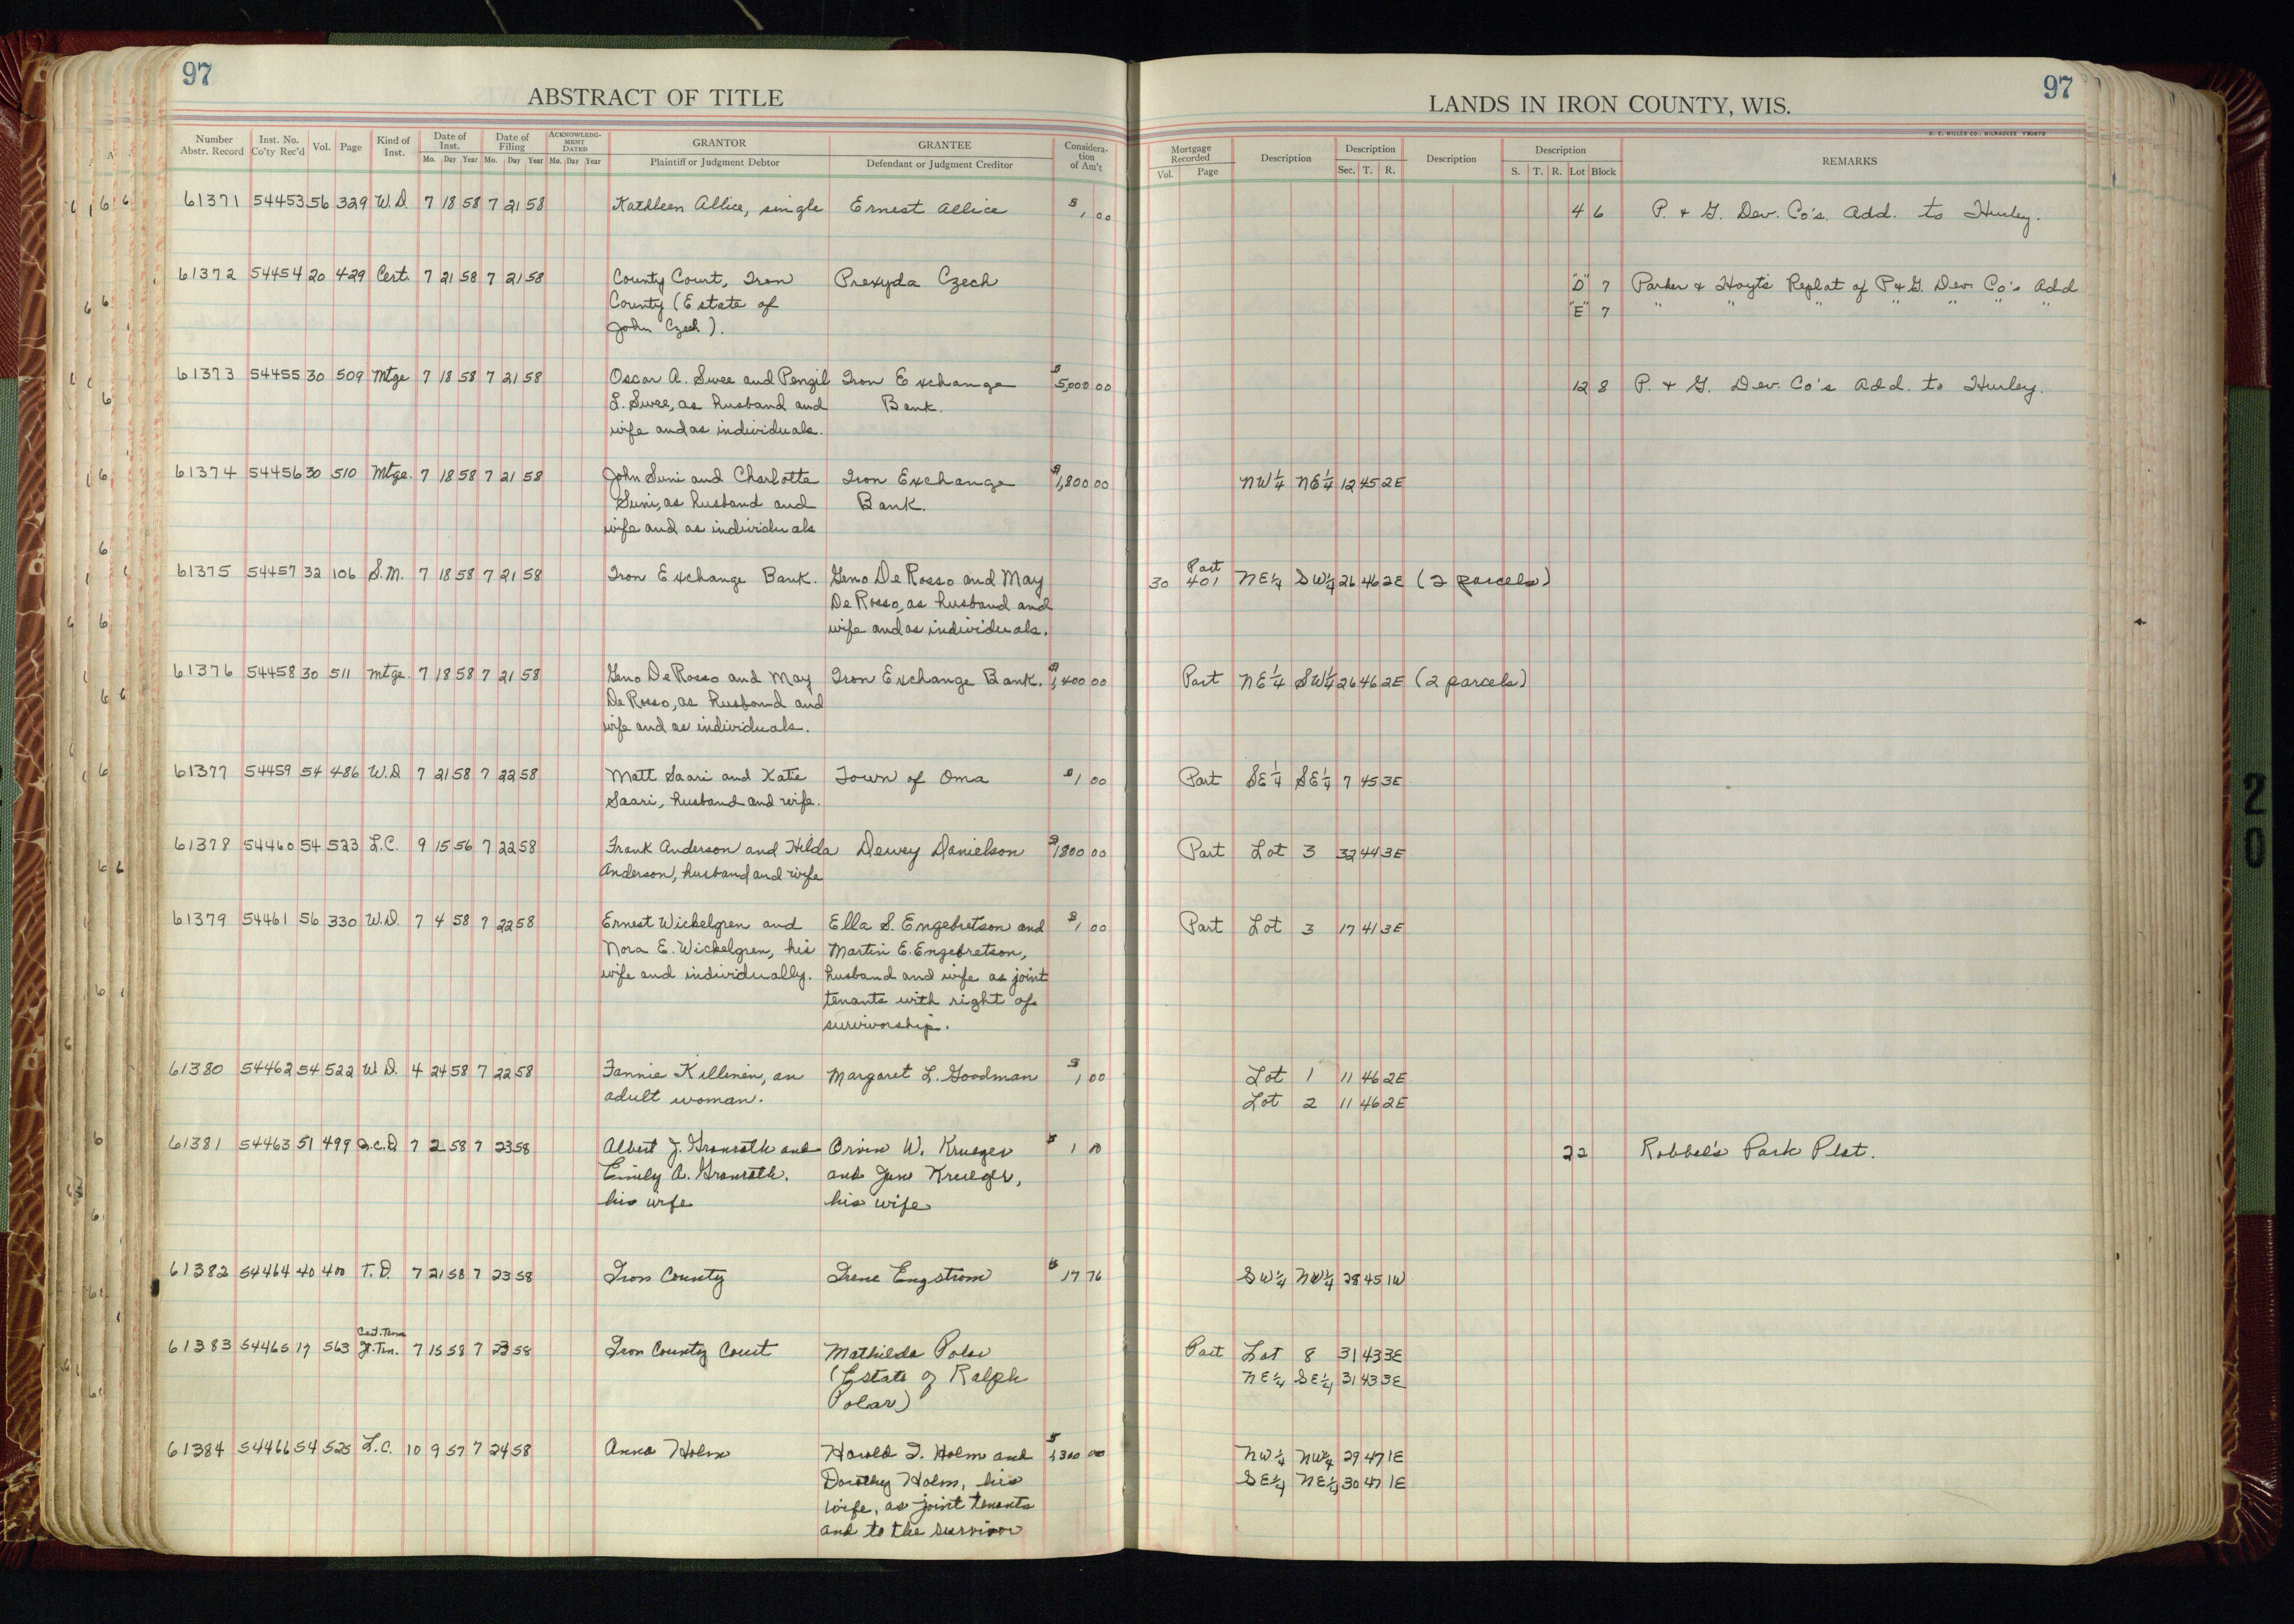 97
ABSTRACT OF TITLE
Number Abstr. Record Inst. No. Co'ty Rec'd Vol. Page Kind of Inst. Date of Inst. Mo. Day Year Date of Filing Mo. Day Year ACKNOWLEDG-MENT DATED Mo. Day Year GRANTOR Plaintiff or Judgment Debtor GRANTEE Defendant or Judgment Creditor Considera-tion of Am't
61371 54453 56 329 W.D. 7 18 58 7 21 58 Kathleen Allice, single Ernest Allice $ 1 00
61372 54454 20 429 Cert. 7 21 58 7 21 58 County Court, Iron Prexyda Czech
County (Estate of
John Czech).
61373 54455 30 509 Mtge 7 18 58 7 21 58 Oscar A. Swee and Pengil Iron Exchange $ 5,000 00
L. Swee, as husband and Bank.
wife and as individuals.
61374 54456 30 510 Mtge. 7 18 58 7 21 58 John Suni and Charlotte Iron Exchange $ 1,800 00
Suni, as husband and Bank.
wife and as individuals
61375 54457 32 106 S.M. 7 18 58 7 21 58 Iron Exchange Bank. Geno DeRosso and May
DeRosso, as husband and
wife and as individuals.
61376 54458 30 511 Mtge. 7 18 58 7 21 58 Geno DeRosso and May Iron Exchange Bank. $ 1,400 00
DeRosso, as husband and
wife and as individuals.
61377 54459 54 486 W.D 7 21 58 7 22 58 Matt Saari and Katie Town of Oma $ 1 00
Saari, husband and wife.
61378 54460 54 523 L.C. 9 15 56 7 22 58 Frank Anderson and Hilda Dewey Danielson $ 1800 00
Anderson, husband and wife
61379 54461 56 330 W.D. 7 4 58 7 22 58 Ernest Wickelgren and Ella S. Engebretson and $ 1 00
Nora E. Wickelgren, his Martin E. Engebretson,
wife and individually. husband and wife as joint
tenants with right of
survivorship.
61380 54462 54 522 W.D. 4 24 58 7 22 58 Fannie Killinen, an Margaret L. Goodman $ 1 00
adult woman.
61381 54463 51 499 Q.C.D 7 2 58 7 23 58 Albert J. Gronroth and Orvin W. Krueger $ 1 00
Emily A. Gronroth, and June Krueger,
his wife his wife
61382 54464 40 400 T.D. 7 21 58 7 23 58 Iron County Irene Engstrom $ 17 76
Cert. Term
61383 54465 17 563 Jt. Ten. 7 15 58 7 23 58 Iron County Court Mathilda Polar
(Estate of Ralph
Polar)
61384 54466 54 525 L.C. 10 9 57 7 24 58 Anna Holm Harold I. Holm and $ 1,300 00
Dorothy Holm, his
wife, as joint tenants
and to the survivor
97
LANDS IN IRON COUNTY, WIS.
H. C. MILLER CO., MILWAUKEE
Mortgage Recorded Vol. Page Description Description Sec. T. R. Description Description S. T. R. Lot Block REMARKS
4 6 P. & G. Dev. Co's. Add. to Hurley.
"D" 7 Parker & Hoyt's Replat of P & G. Dev. Co's Add
"E" 7 " " " " " " "
12 8 P. & G. Dev. Co's Add. to Hurley.
NW¼ NE¼ 12 45 2E
Part
30 401 NE¼ SW¼ 26 46 2E (2 parcels)
Part NE¼ SW¼ 26 46 2E (2 parcels)
Part SE¼ SE¼ 7 45 3E
Part Lot 3 32 44 3E
Part Lot 3 17 41 3E
Lot 1 11 46 2E
Lot 2 11 46 2E
22 Robbel's Park Plat.
SW¼ NW¼ 28 45 1W
Part Lot 8 31 43 3E
NE¼ SE¼ 31 43 3E
NW¼ NW¼ 29 47 1E
SE¼ NE¼ 30 47 1E
20